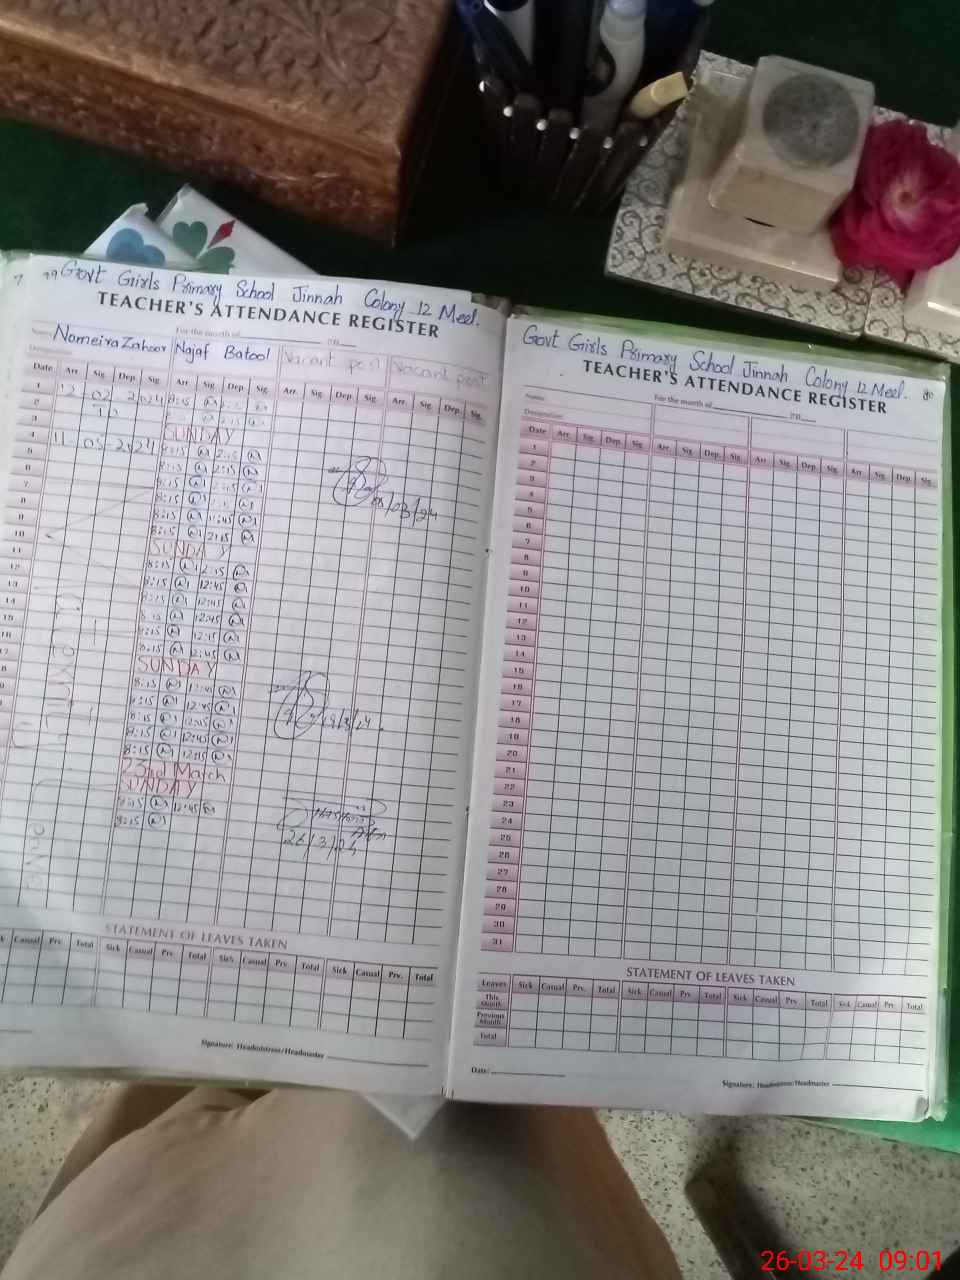 79 Govt Girls Primary School Jinnah Colony 12 Meel.
TEACHER'S ATTENDANCE REGISTER
For the month of
Name: Nomeira Zahoor Najaf Batool Vacant post Vacant post
Designation:
Date Arr. Sig. Dep. Sig. Arr. Sig. Dep. Sig. Arr. Sig. Dep. Sig. Arr. Sig. Dep. Sig.
1 12 02 2024 8:15
2 To
3 SUNDAY
4 11 05 2024 8:15 2:15
5 8:15 2:15
6 8:15
7 8:15
8 8:15
9 8:15 2:15
10 SUNDAY
11 8:15 2:15
12 8:15 12:45
13 8:15 12:45
14 8:15 12:45
15 8:15 12:45
16 8:15 12:45
17 SUNDAY
8:15 12:45
8:15 12:45
8:15
8:15 12:45
8:15
23rd March
SUNDAY
8:15 12:45
8:15
26/3/24
STATEMENT OF LEAVES TAKEN
Casual Prv. Total Sick Casual Prv. Total Sick Casual Prv. Total Sick Casual Prv. Total
Signature: Headmistress/Headmaster
Govt Girls Primary School Jinnah Colony 12 Meel. 80
TEACHER'S ATTENDANCE REGISTER
For the month of
Name:
Designation:
Date Arr. Sig. Dep. Sig. Arr. Sig. Dep. Sig. Arr. Sig. Dep. Sig. Arr. Sig. Dep. Sig.
1
2
3
4
5
6
7
8
9
10
11
12
13
14
15
16
17
18
19
20
21
22
23
24
25
26
27
28
29
30
31
STATEMENT OF LEAVES TAKEN
Leaves Sick Casual Prv. Total Sick Casual Prv. Total Sick Casual Prv. Total Sick Casual Prv. Total
This Month
Previous Month
Total
Date:
Signature: Headmistress/Headmaster
26-03-24 09:01